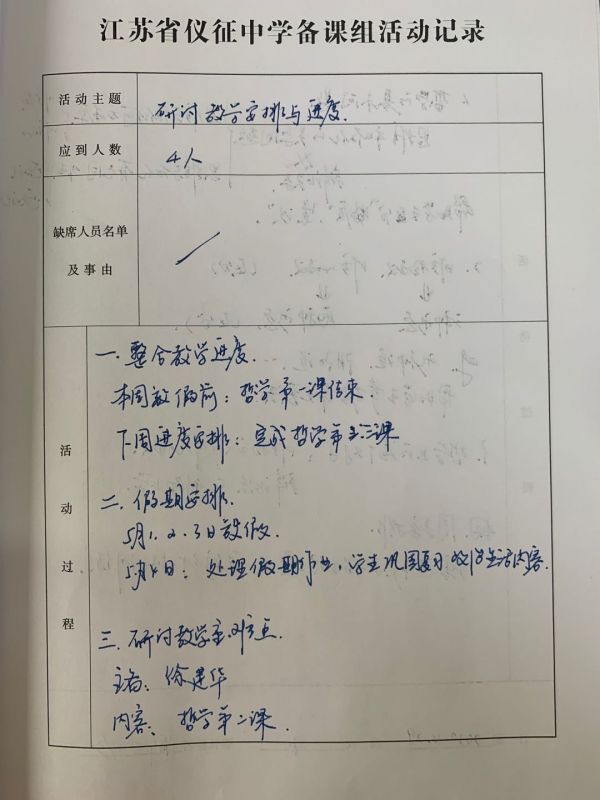 江苏省仪征中学备课组活动记录
活动主题
研讨教学安排与进度.
应到人数
4人
缺席人员名单
及事由
活动过程
一.整合教学进度.
本周放假前:哲学第一课结束.
下周进度安排:完成哲学第二三课
二.假期安排.
5月1.2.3日放假.
5月4日:处理假期作业,学生巩固复习政治生活内容.
三.研讨教学重.难点.
主备:徐建华
内容:哲学第二课.